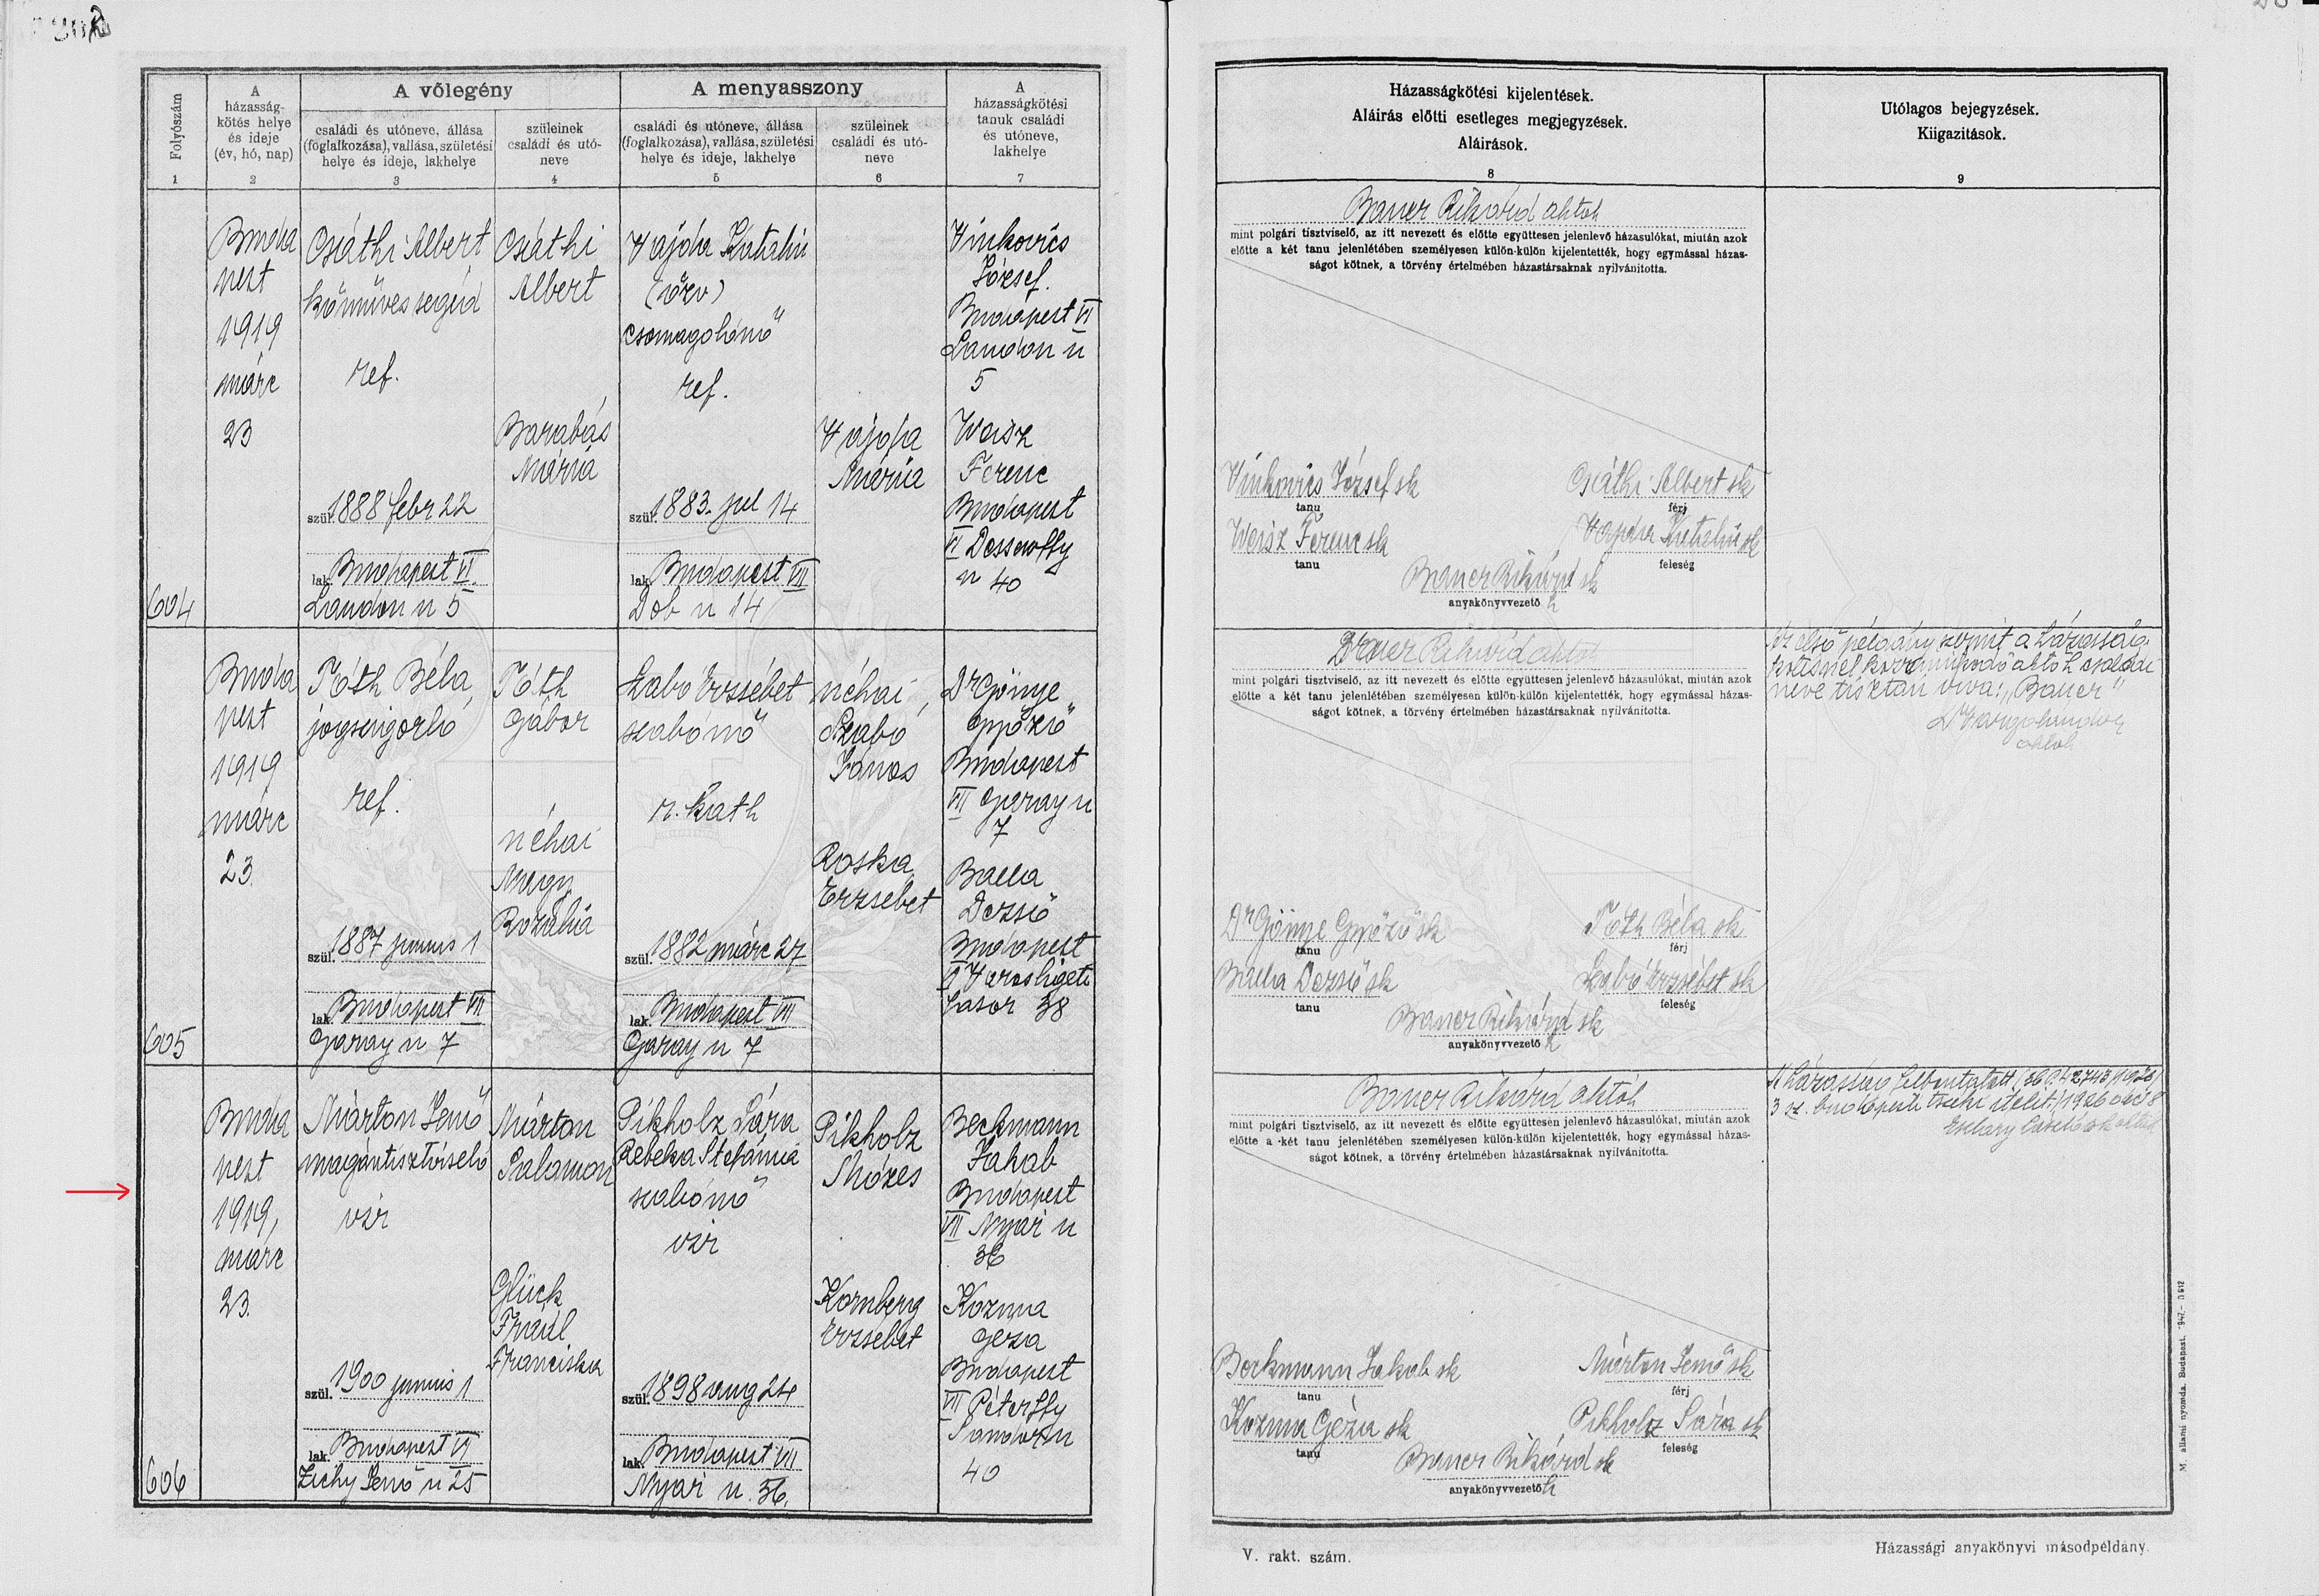 Folyószám
1
A
házasság-
kötés helye
és ideje
(év, hó, nap)
2
A vőlegény
családi és utóneve, állása
(foglalkozása), vallása, születési
helye és ideje, lakhelye
3
szüleinek
családi és utó-
neve
4
A menyasszony
családi és utóneve, állása
(foglalkozása), vallása, születési
helye és ideje, lakhelye
5
szüleinek
családi és utó-
neve
6
A
házasságkötési
tanuk családi
és utóneve,
lakhelye
7
Házasságkötési kijelentések.
Aláirás előtti esetleges megjegyzések.
Aláirások.
8
Utólagos bejegyzések.
Kiigazitások.
9
604
Buda
pest
1919
márc
23
Csáthi Albert
kőmüves segéd
ref.
szül. 1888 febr 22
lak. Budapest VI.
Landon u 5
Csáthi
Albert
Barabás
Mária
Vajda Katalin
(özv)
csomagolónő
ref.
szül. 1883. jul 14
lak. Budapest VII
Dob u 14
Vajda
Mária
Vinkovics
József.
Budapest VI
Landon u
5
Weisz
Ferenc
Budapest
VI Dessewffy
u 40
Bauer Rikárd aktoh
mint polgári tisztviselő, az itt nevezett és előtte együttesen jelenlevő házasulókat, miután azok
előtte a két tanu jelenlétében személyesen külön-külön kijelentették, hogy egymással házas-
ságot kötnek, a törvény értelmében házastársaknak nyilvánította.
Vinkovics József sk
tanu
Csáthi Albert sk
férj
Weisz Ferenc sk
tanu
Vajda Katalin sk
feleség
Bauer Rikárd sk
anyakönyvvezető h
605
Buda
pest
1919
márc
23.
Tóth Béla
jogszigorló
ref.
szül. 1887 junius 1
lak. Budapest VII
Garay u 7
Tóth
Gábor
néhai
Nagy
Rozália
Szabó Erzsébet
szabónő
r. kath
szül. 1882 márc 27
lak. Budapest VII
Garay u 7
néhai
Szabó
János
Roska
Erzsébet
Dr Gönye
Győző
Budapest
VII Garay u
7
Balla
Dezső
Budapest
VI Városligeti
fasor 38
Bauer Rikárd aktoh
mint polgári tisztviselő, az itt nevezett és előtte együttesen jelenlevő házasulókat, miután azok
előtte a két tanu jelenlétében személyesen külön-külön kijelentették, hogy egymással házas-
ságot kötnek, a törvény értelmében házastársaknak nyilvánította.
Dr Gönye Győző sk
tanu
Tóth Béla sk
férj
Balla Dezső sk
tanu
Szabó Erzsébet sk
feleség
Bauer Rikárd sk
anyakönyvvezető h
Az első példány szerint a házasság-
kötésnél közreműködő aktoh családi
neve tisztán irva: „Bauer"
aktoh
606
Buda
pest
1919,
márc
23.
Márton Jenő
magántisztviselő
izr
szül. 1900 junius 1
lak. Budapest VI
Zichy Jenő u 25
Márton
Salamon
Glück
Fráil
Franciska
Pikholz Sára
Rebeka Stefánia
szabónő
izr
szül. 1898 aug 24
lak. Budapest VII
Nyár u. 36.
Pikholz
Mózes
Kornberg
Erzsébet
Beckmann
Jakab
Budapest
VII Nyár u
36
Kozma
Géza
Budapest
VII Péterffy
Sándor u
40
Bauer Rikárd aktoh
mint polgári tisztviselő, az itt nevezett és előtte együttesen jelenlevő házasulókat, miután azok
előtte a két tanu jelenlétében személyesen külön-külön kijelentették, hogy egymással házas-
ságot kötnek, a törvény értelmében házastársaknak nyilvánította.
Beckmann Jakab sk
tanu
Márton Jenő sk
férj
Kozma Géza sk
tanu
Pikholz Sára sk
feleség
Bauer Rikárd sk
anyakönyvvezető h
A házasság felbontatott
M. állami nyomda. Budapest.
V. rakt. szám.
Házassági anyakönyvi másodpéldány.